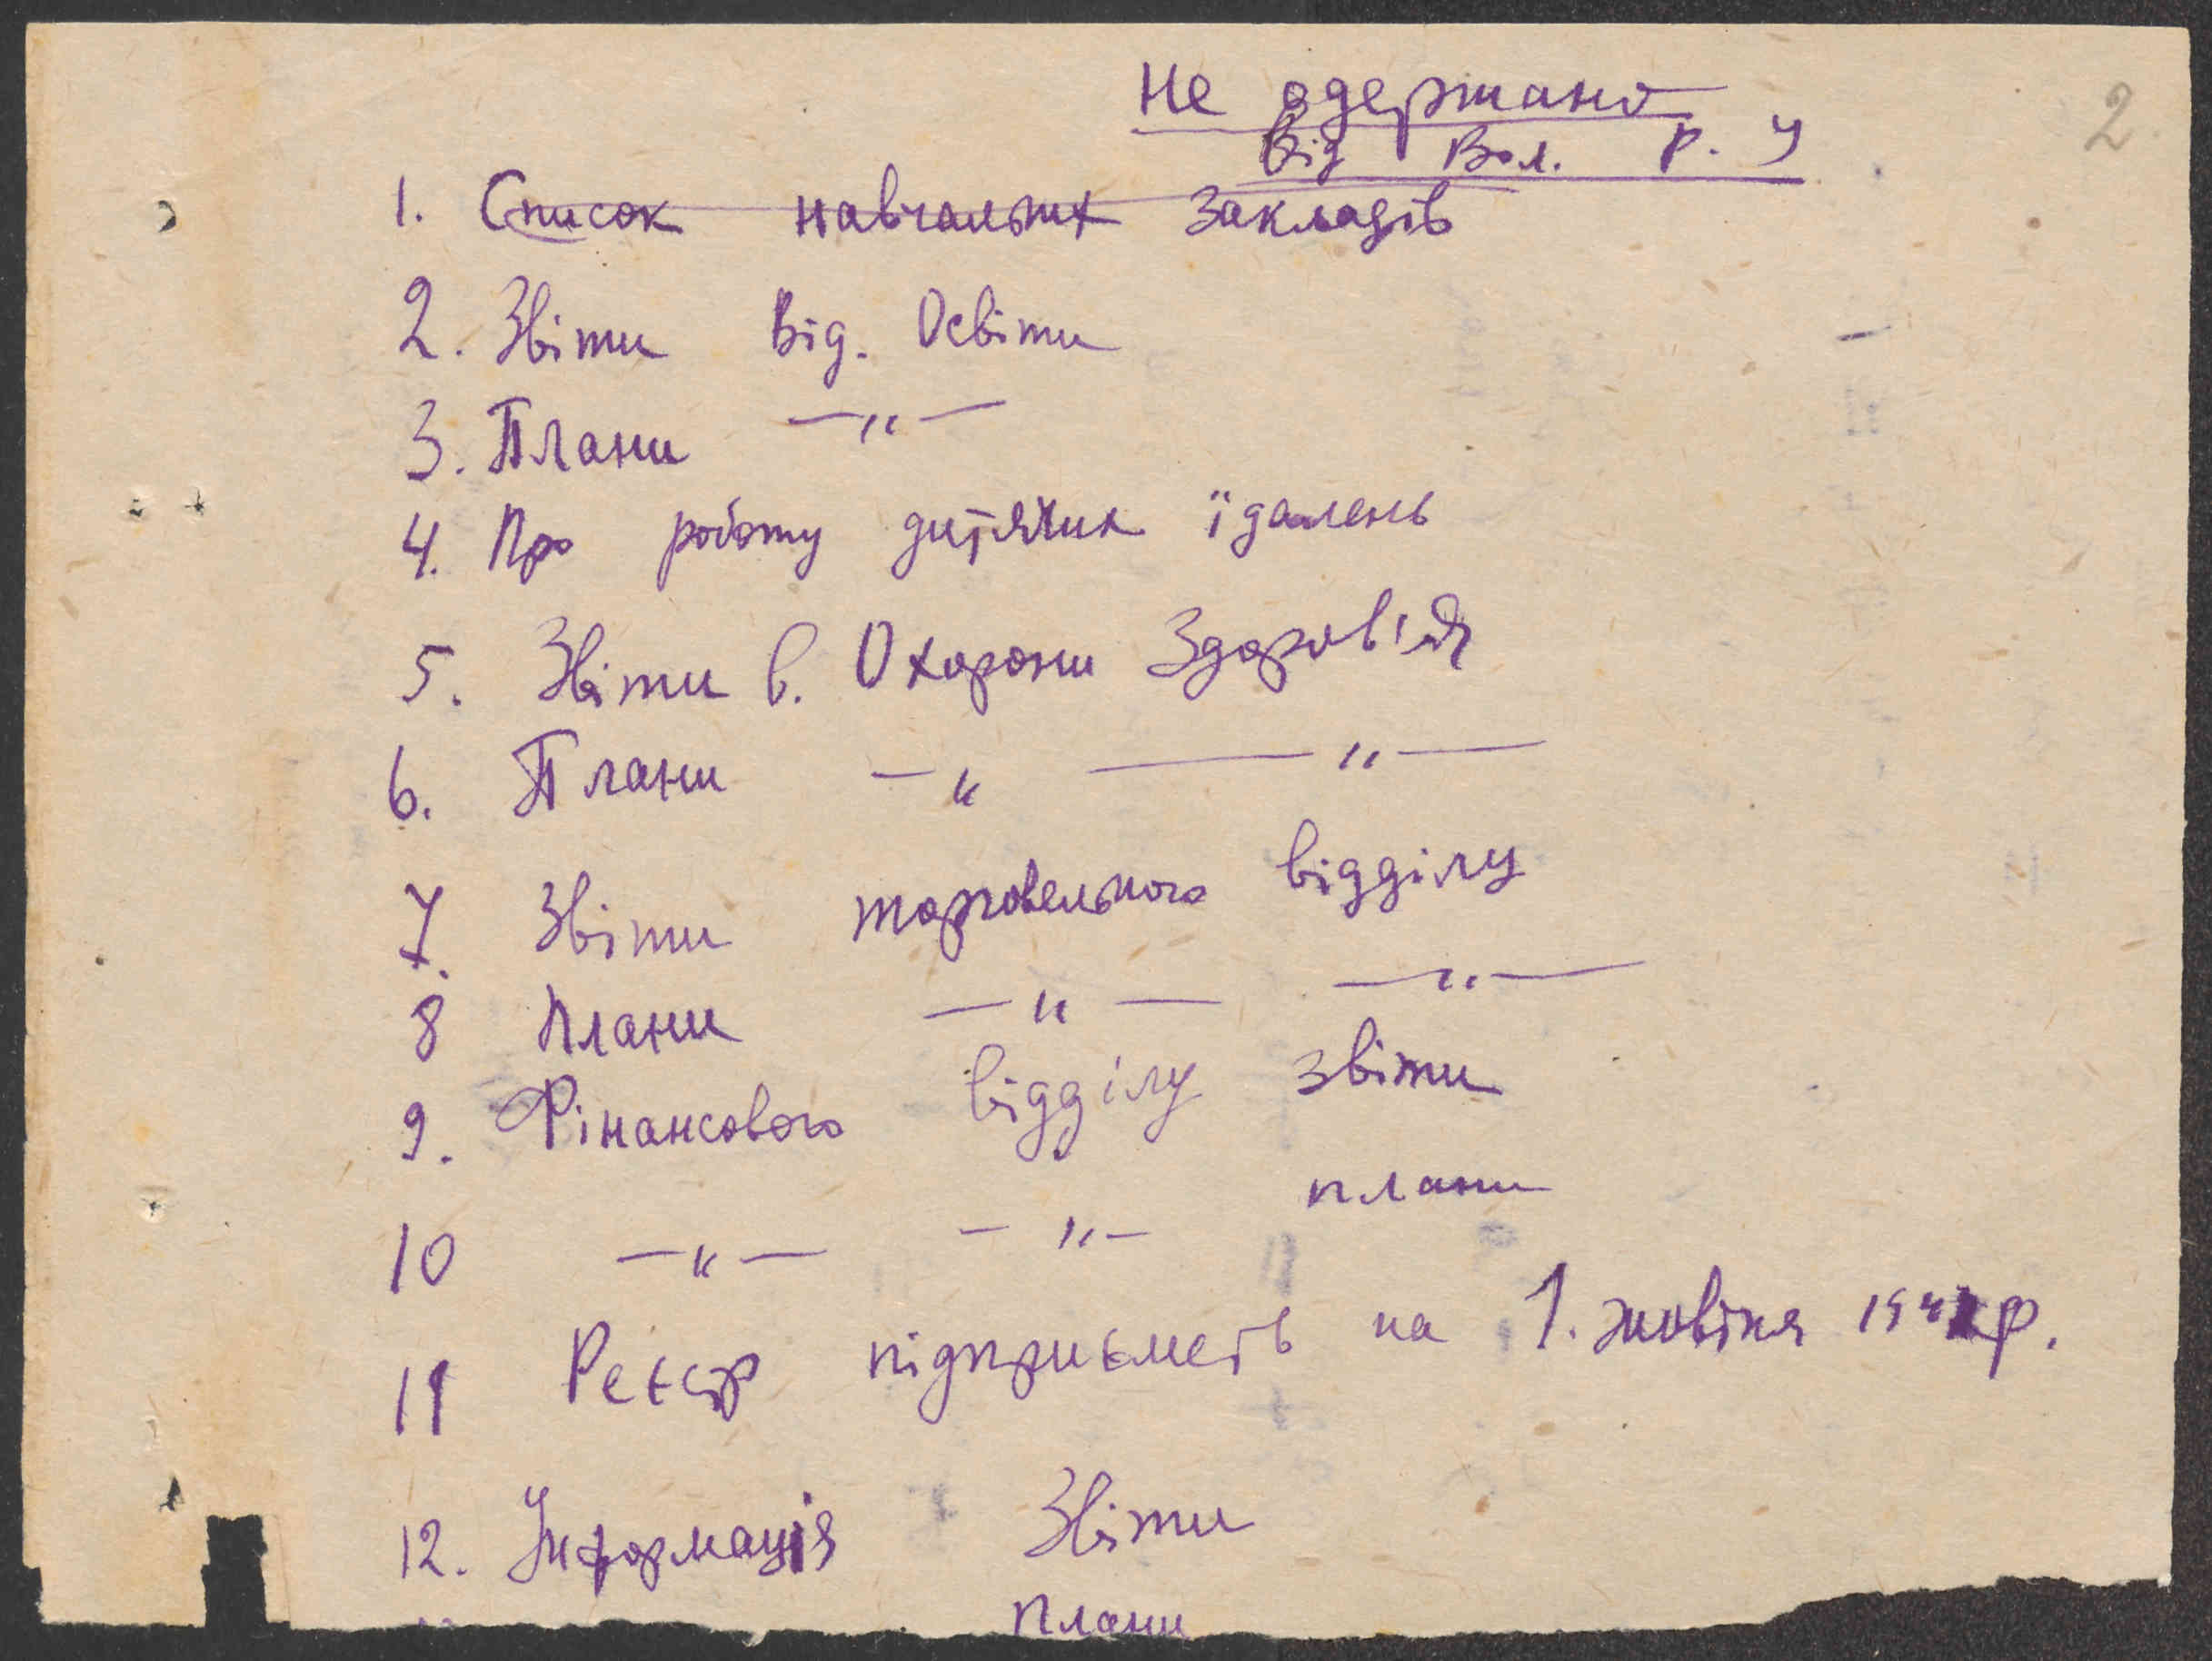 2
Не одержано
від Вол. Р. У
1. Список навчальних закладів
2. Звіти Від. Освіти
3. Плани —„—
4. Про роботу дитячих їдалень
5. Звіти в. Охорони Здоров'я
6. Плани —„ —„—
7. Звіти торговельного відділу
8 Плани —„— —„—
9. Фінансового відділу звіти
10 —„— —„— плани
11 Реєстр підприємств на 1. жовтня р.
12. Інформація Звіти
Плани